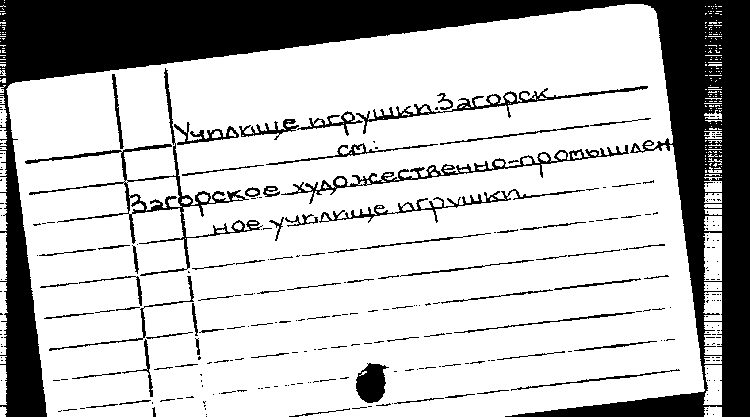 Училище игрушки. Загорск.
см.:
Загорское художественно-промышлен
ное училище игрушки.